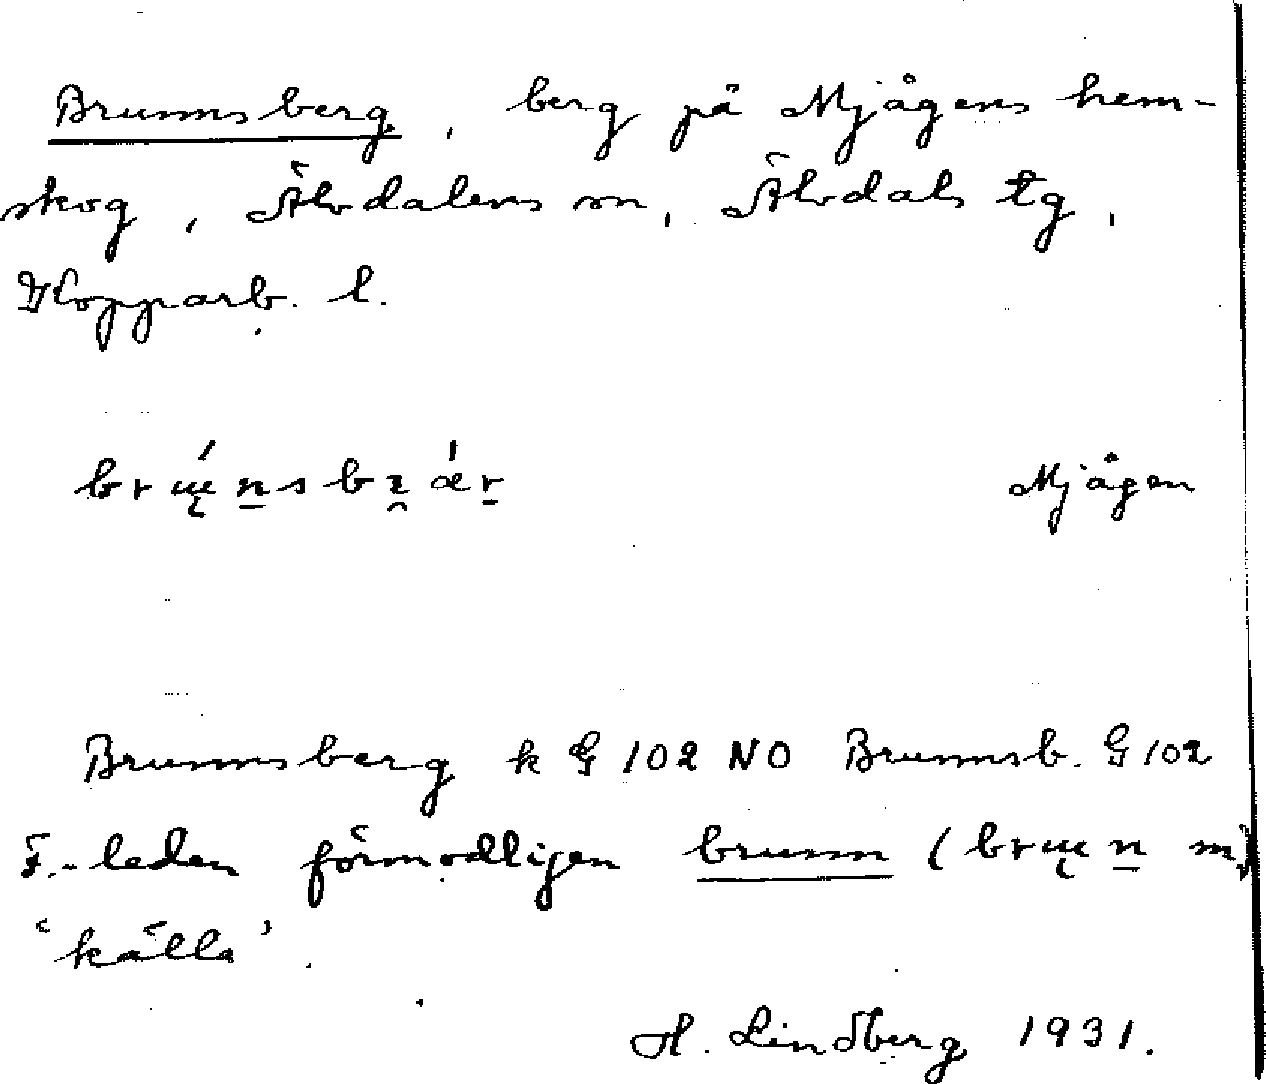 Brunnsberg, berg på Mjågens hem-
skog, Älvdalens sn, Älvdals tg,
Kopparb. l.
Mjågen
Brunnsberg k G 102 NO Brunnsb. G 102
F.-leden förmodligen brunn (
'källa'.
H. Lindberg 1931.